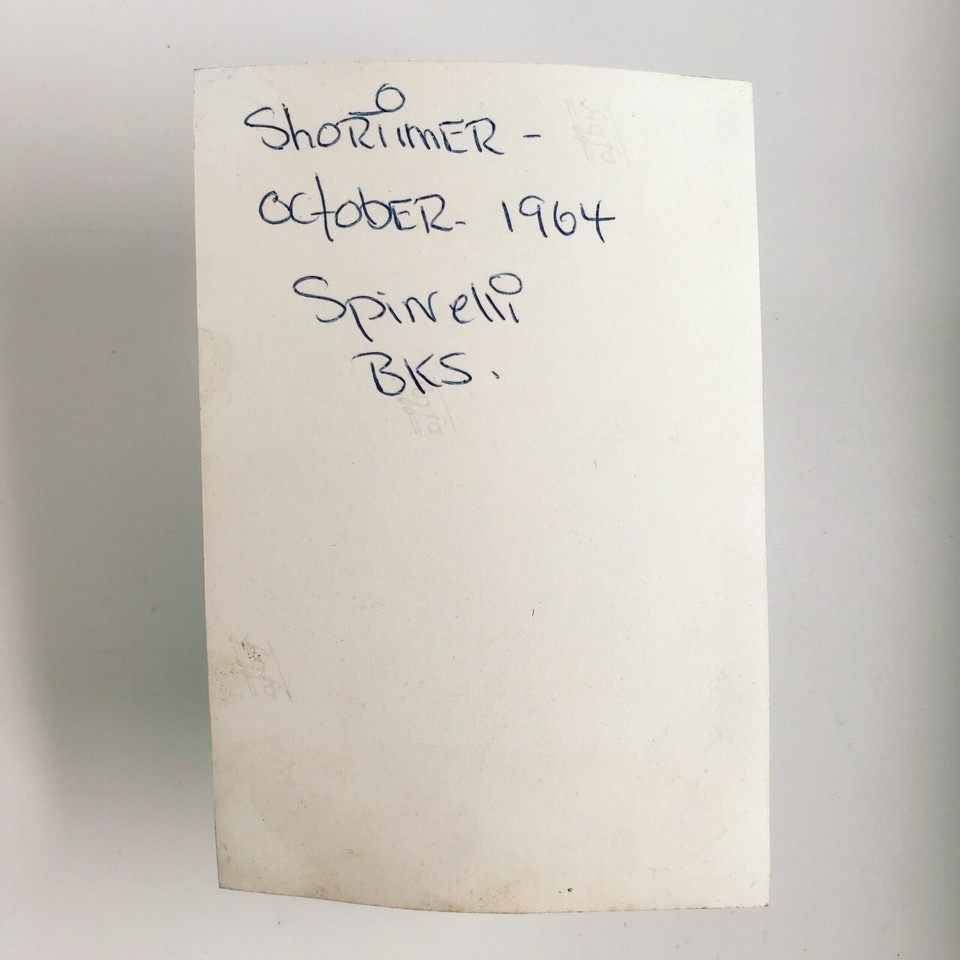 ShoRTimER -
OctobER- 1964
Spinelli
BKS.